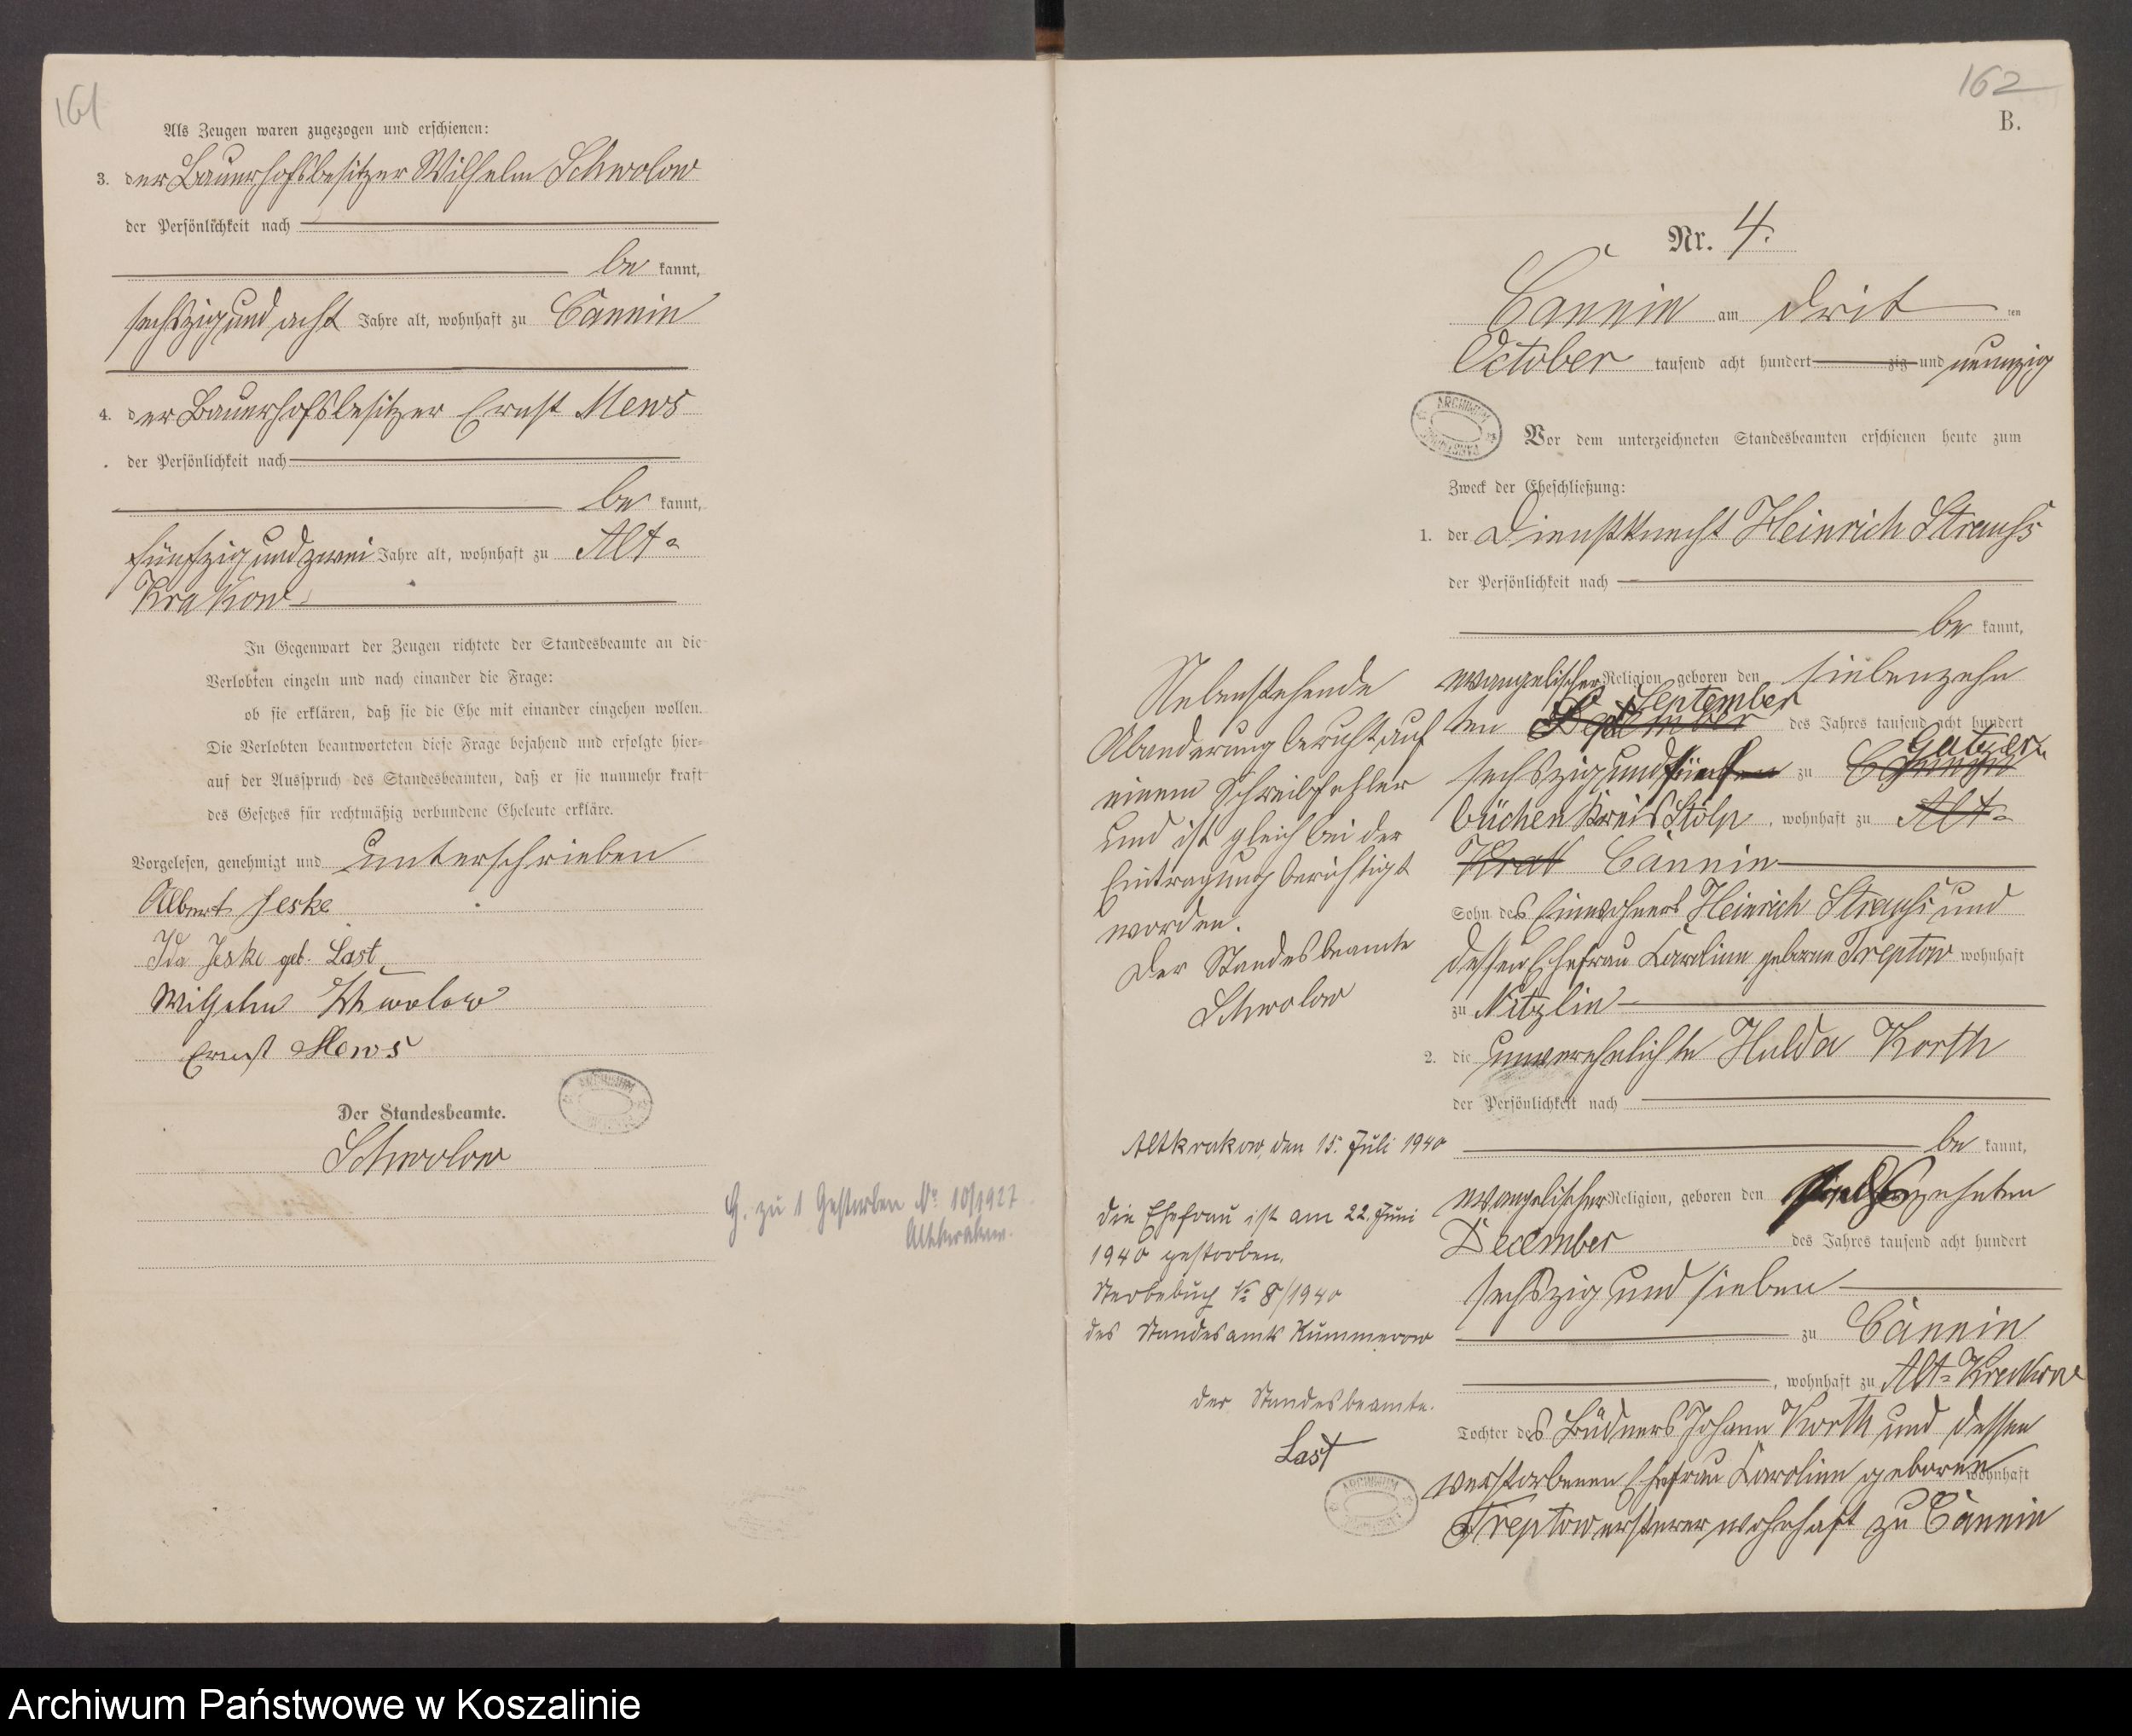 161
Als Zeugen waren zugezogen und erschienen:
3. der Bauerhofsbesitzer Wilhelm Schwolow
der Persönlichkeit nach
be kannt,
sechszig und acht Jahre alt, wohnhaft zu Cannin
4. der Bauerhofsbesitzer Ernst Mews
der Persönlichkeit nach
be kannt,
fünfzig und zwei Jahre alt, wohnhaft zu Alt-
Krakow
In Gegenwart der Zeugen richtete der Standesbeamte an die
Verlobten einzeln und nach einander die Frage:
ob sie erklären, daß sie die Ehe mit einander eingehen wollen.
Die Verlobten beantworteten diese Frage bejahend und erfolgte hier-
auf der Ausspruch des Standesbeamten, daß er sie nunmehr kraft
des Gesetzes für rechtmäßig verbundene Eheleute erkläre.
Vorgelesen, genehmigt und unterschrieben
Albert Jeske
Ida Jeske geb. Last
Wilhelm Schwolow
Ernst Mews
Der Standesbeamte.
Schwolow
G. zu 1 Gestorben No 10/1927
Altkrakow.
162
B.
Nr. 4.
Cannin am dritten
October tausend acht hundert zig und neunzig
ARCHIWUM
Vor dem unterzeichneten Standesbeamten erschienen heute zum
Zweck der Eheschließung:
1. der Dienstknecht Heinrich Strauss
der Persönlichkeit nach
be kannt,
evangelischer Religion, geboren den siebenzehn
September
ten des Jahres tausend acht hundert
Gatzer
sechszig und fünf zu
büchen Kreis Stolp, wohnhaft zu Alt-
Krak Cannin
Sohn des Einwohners Heinrich Strauss und
dessen Ehefrau Karoline geborne Treptow wohnhaft
zu Nitzlin
2. die unverehelichte Hulda Korth
der Persönlichkeit nach
be kannt,
evangelischer Religion, geboren den zehnten
December des Jahres tausend acht hundert
sechszig und sieben
zu Cannin
, wohnhaft zu Alt-Krakow
Tochter des Büdners Johann Korth und dessen
verstorbenen Ehefrau Karoline geborne wohnhaft
Treptow ersterer wohnhaft zu Cannin
Nebenstehende
Abänderung beruht auf
einem Schreibfehler
und ist gleich bei der
Eintragung berichtigt
worden.
Der Standesbeamte
Schwolow
Altkrakow, den 15. Juli 1940
Die Ehefrau ist am 22. Juni
1940 gestorben.
Sterbebuch No 8/1940
des Standesamts Kummerow
Der Standesbeamte.
Last
ARCHIWUM
Archiwum Państwowe w Koszalinie